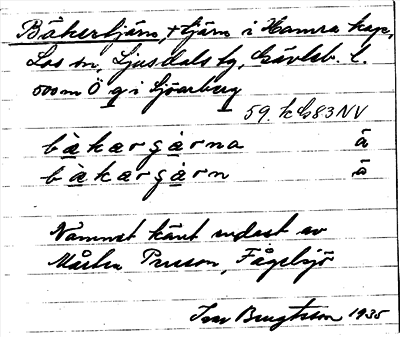 Båkertjärn, + tjärn i Hamra kap,
Los sn, Ljusdals tg, Gävleb. l.
500m Ö g i Sjöarberg
59. k G 83 NV
bàkargàrna ā
bàkargàrn ā
Namnet känt endast av
Mårten Persson, Fågelsjö
Bengtsson 1935